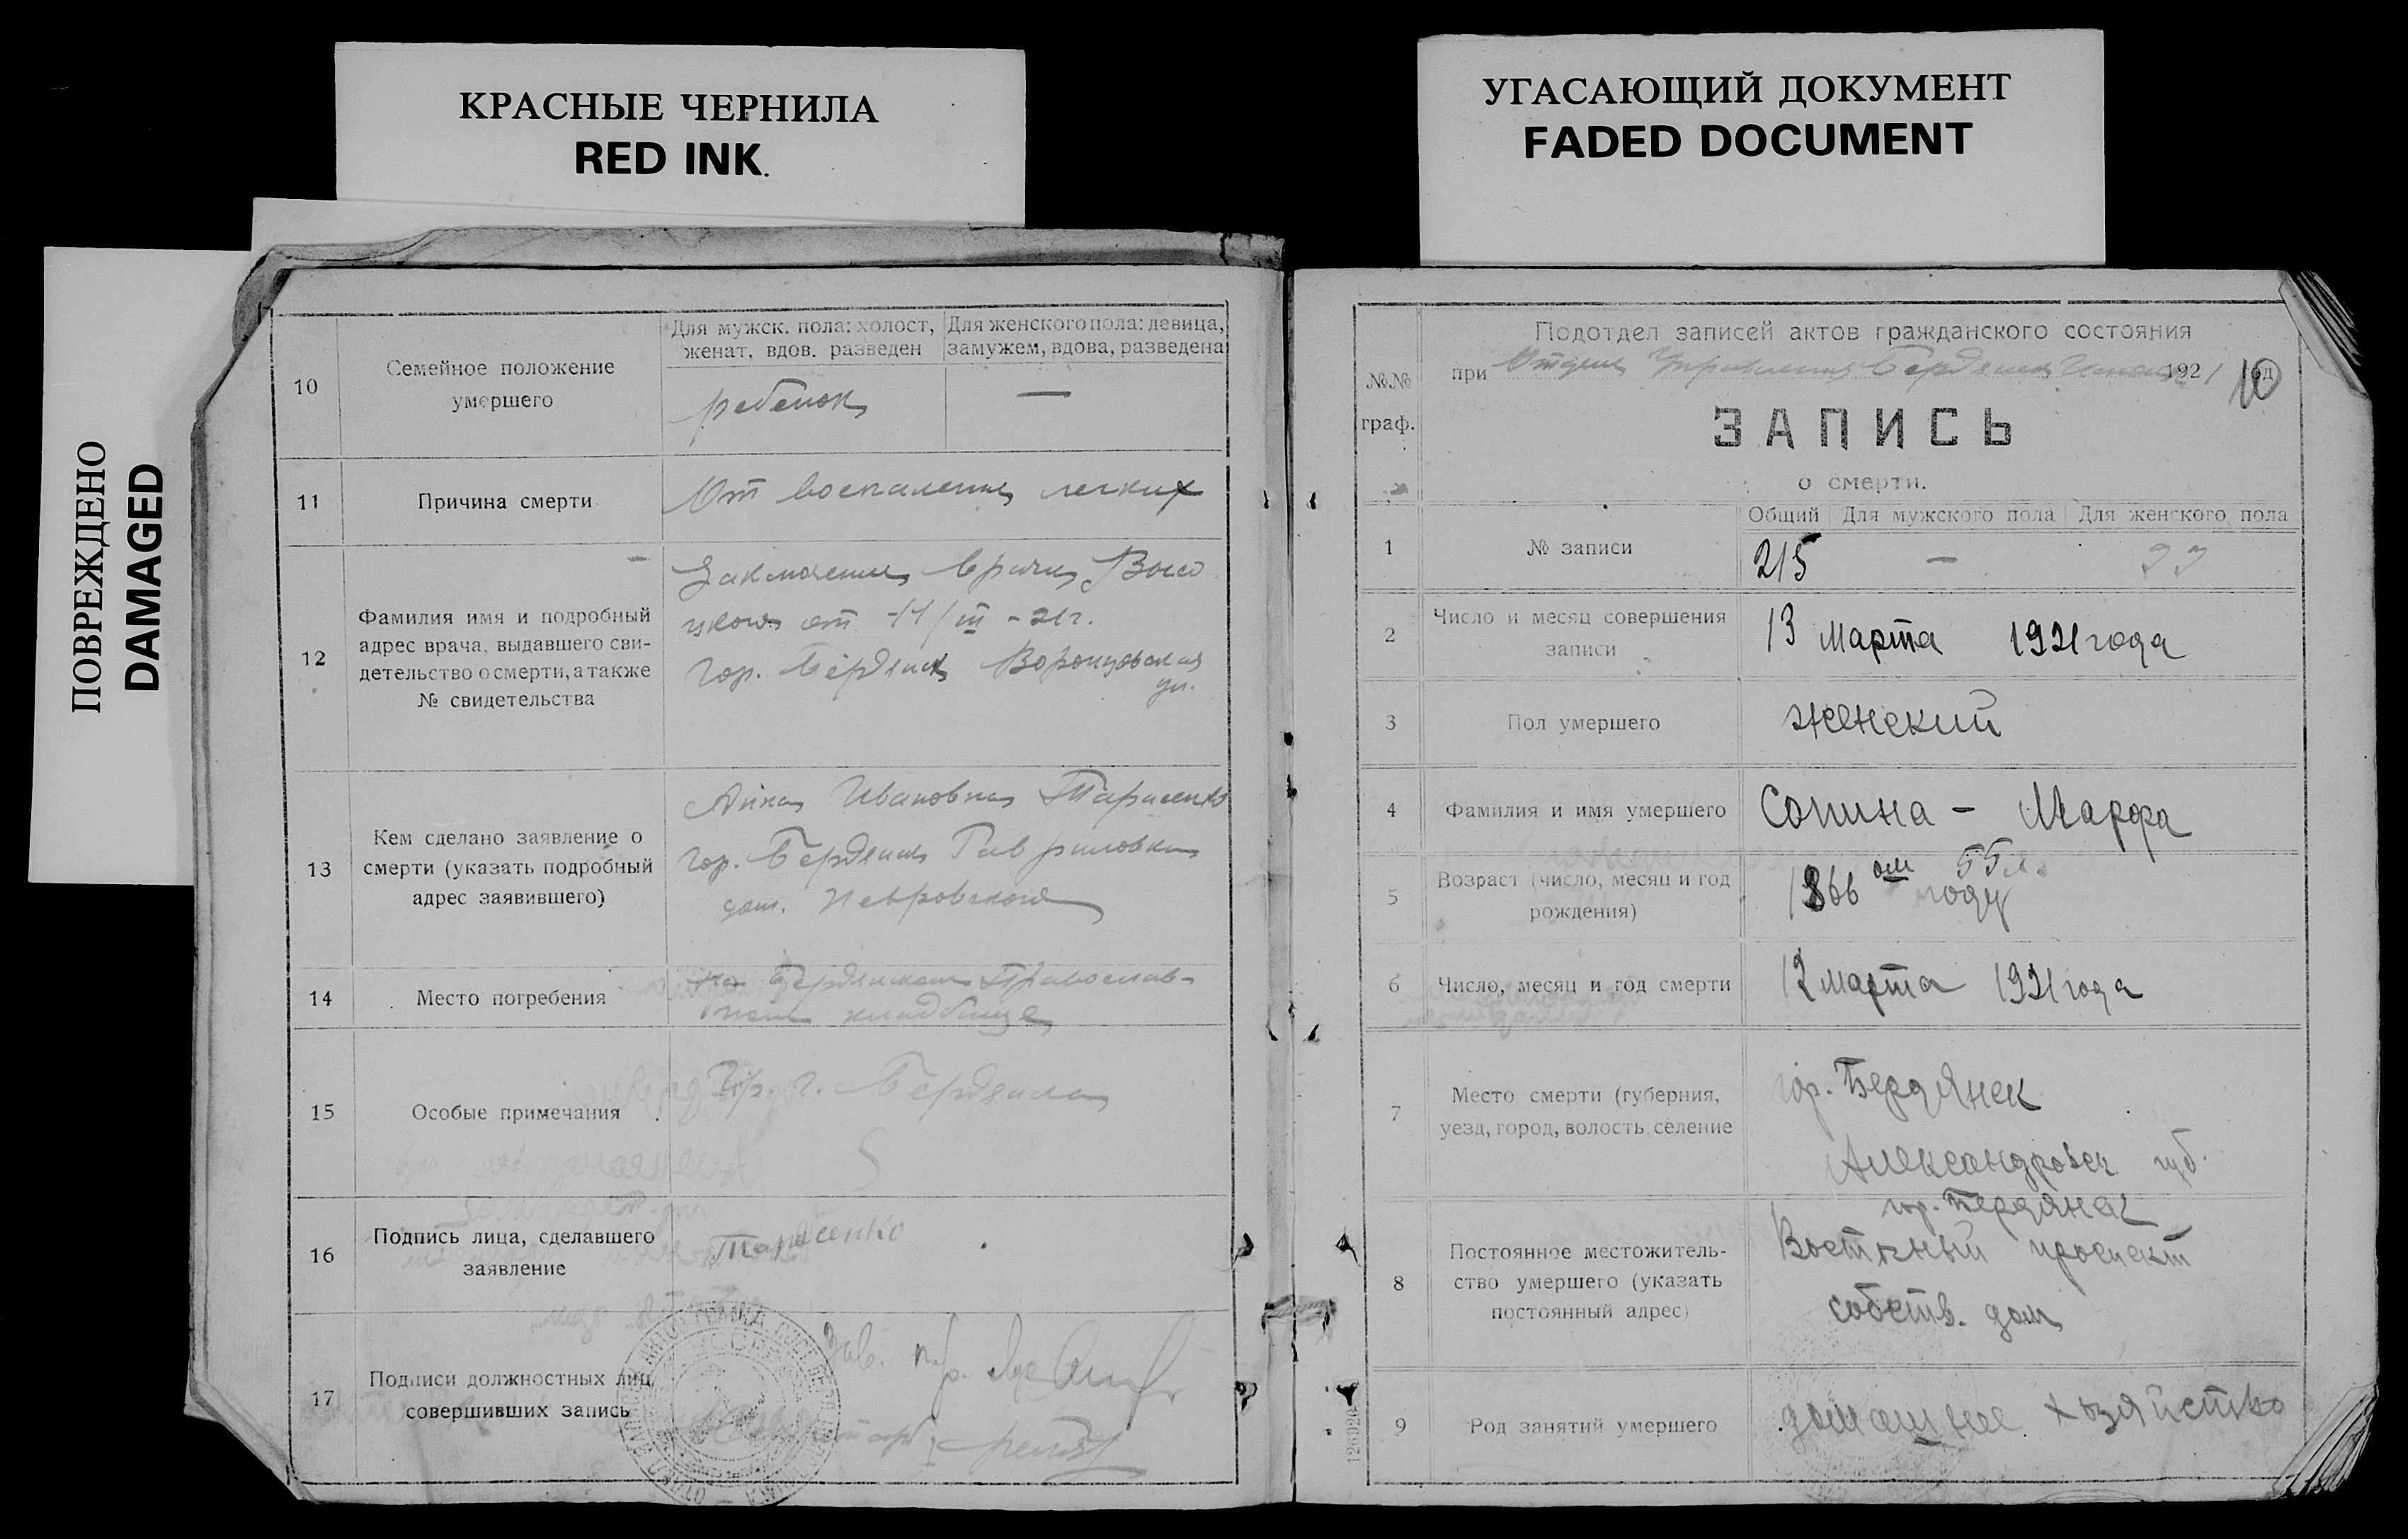 КРАСНЫЕ ЧЕРНИЛА
RED INK.
УГАСАЮЩИЙ ДОКУМЕНТ
FADED DOCUMENT
ПОВРЕЖДЕНО
DAMAGED
10
Семейное положение
умершего
Для мужск. пола: холост,
женат, вдов. разведен
Для женского пола: девица,
замужем, вдова, разведена
ребенок
—
11
Причина смерти
От воспаления легких
12
Фамилия имя и подробный
адрес врача, выдавшего сви-
детельство о смерти, а также
№ свидетельства
Заключение врача
от 11/III - 21г.
гор. Бердянск Воронцовская
ул.
13
Кем сделано заявление о
смерти (указать подробный
адрес заявившего)
Анна Ивановна Тарасенко
гор. Бердянск
дом.
14
Место погребения
на Бердянском Православ-
ном кладбище
15
Особые примечания
Гр. г. Бердянска
16
Подпись лица, сделавшего
заявление
Тарасенко
17
Подписи должностных лиц
совершивших запись
Зав.
№№
граф.
Подотдел записей актов гражданского состояния
при Отделе Управления 1921 год
10
ЗАПИСЬ
о смерти.
1
№ записи
Общий
Для мужского пола
Для женского пола
215
—
2
Число и месяц совершения
записи
13 Марта 1921 года
3
Пол умершего
женский
4
Фамилия и имя умершего
Сопина - Марфа
5
Возраст (число, месяц и год
рождения)
55 л.
1866 ом году
6
Число, месяц и год смерти
12 марта 1921 года
7
Место смерти (губерния,
уезд, город, волость, селение
гор. Бердянск
Александровск губ.
8
Постоянное местожитель-
ство умершего (указать
постоянный адрес)
гор. Бердянск
Восточный проспект
собств. дом
9
Род занятий умершего
домашнее хозяйство